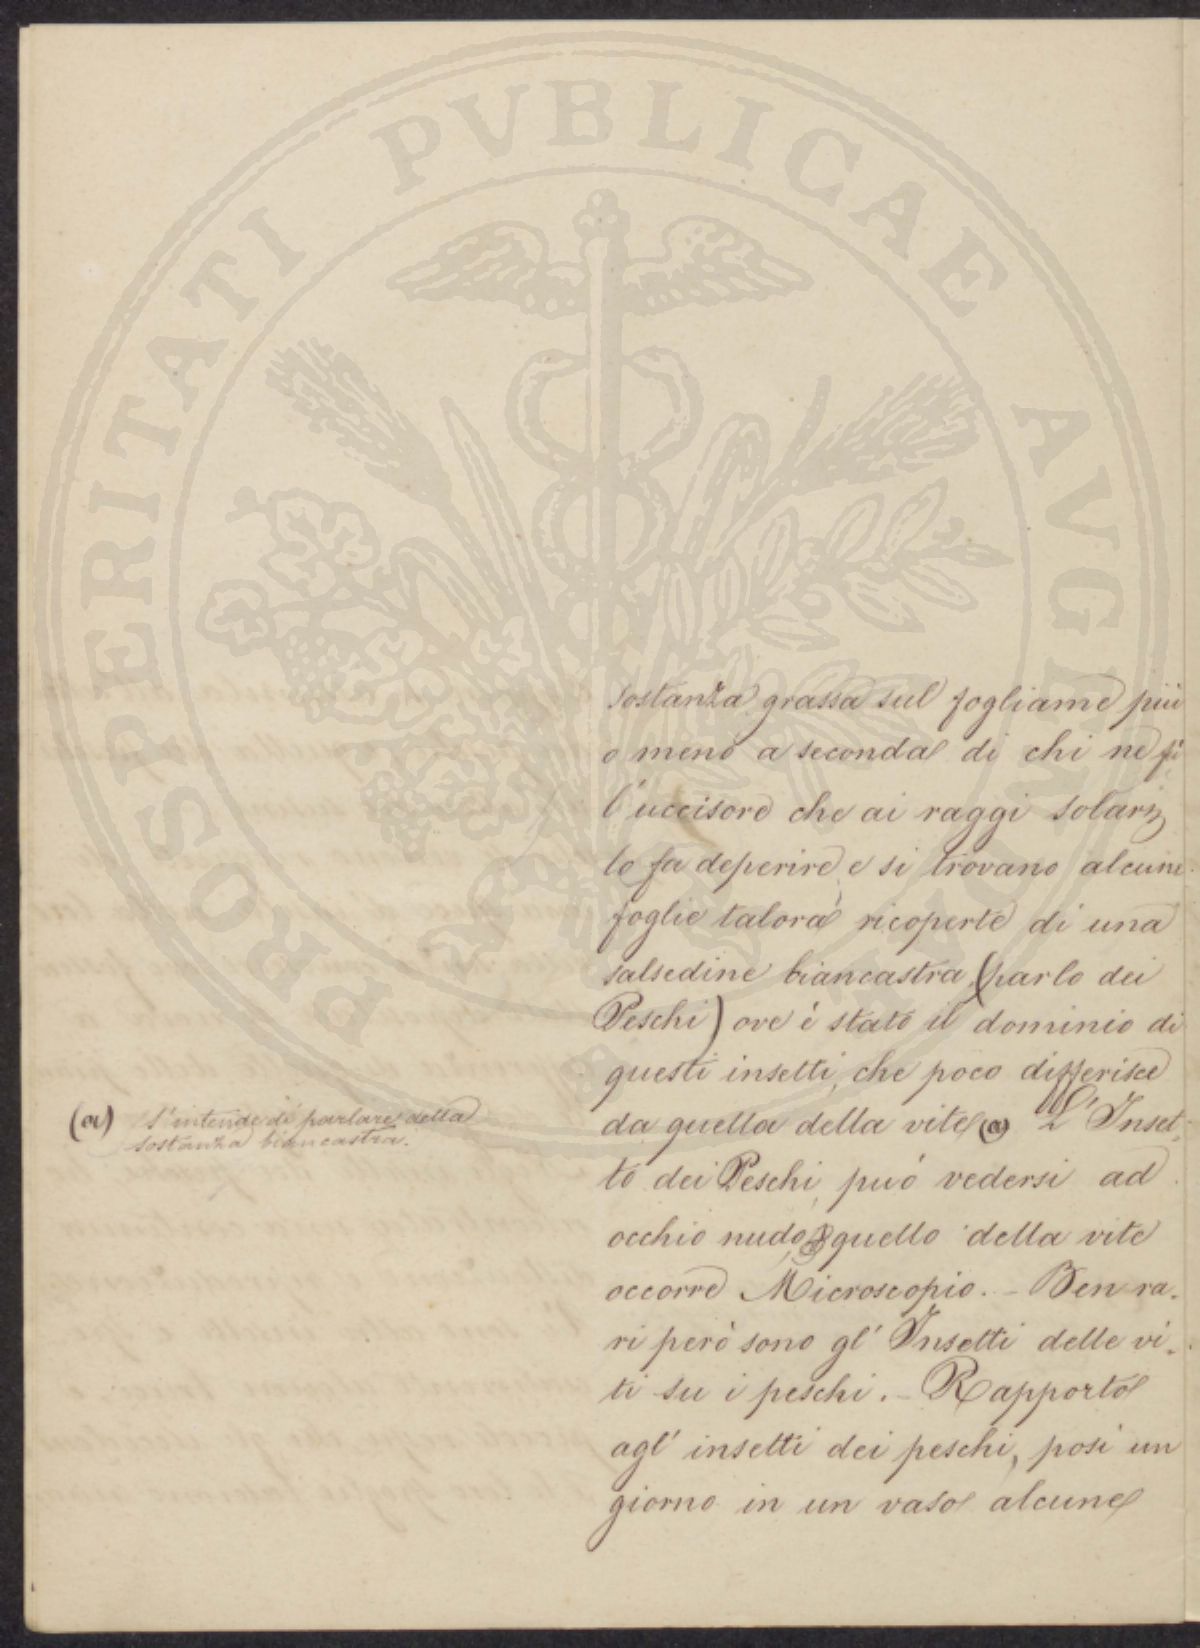 PROSPERITATI PVBLICAE AVGENDAE
sostanza grassa sul fogliame più
o meno a seconda di chi ne fù
l'uccisore che ai raggi solari
lo fa deperire, e si trovano alcune
foglie talora ricoperte di una
salsedine biancastra, (parlo dei
Peschi) ove è stato il dominio di
questi insetti, che poco differisce
da quella della vite (a) L'Inset-
to dei Peschi, può vedersi ad
occhio nudo, quello della vite
occorre Microscopio. - Ben ra-
ri però sono gl'Insetti delle vi-
ti su i peschi. - Rapporto
agl'insetti dei peschi, posi un
giorno in un vaso alcune
(a) S'intende di parlare della
sostanza biancastra.